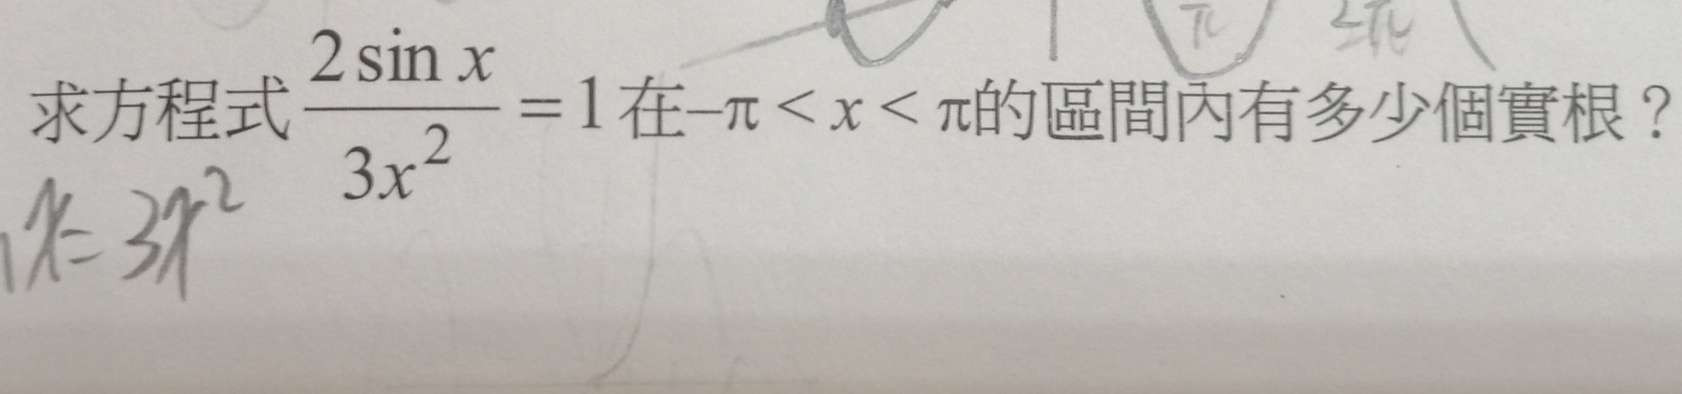 π 2π
求方程式 \frac{2 sin x}{3x^2} = 1 在 –π < x < π的區間內有多少個實根？
x = 3x^2